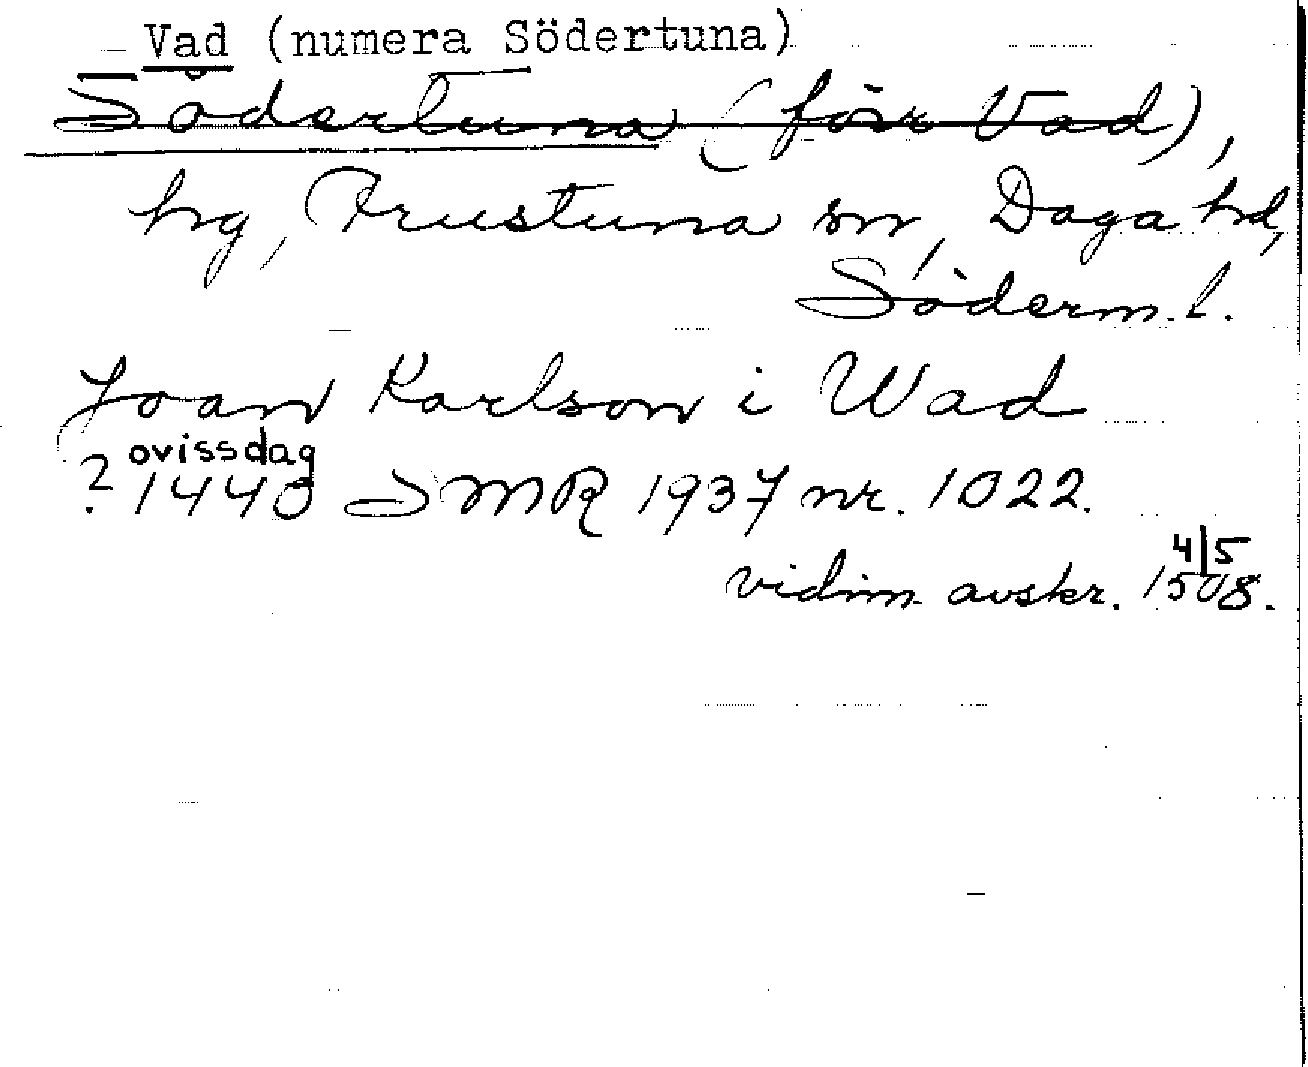 Vad (numera Södertuna)
Södertuna (förr Vad),
hg, Frustuna sn, Daga hd,
Söderm. l.
Joan Karlson i Wad
ovissdag
? 1440 SMR 1937 nr. 1022.
4/5
vidim. avskr. 1508.